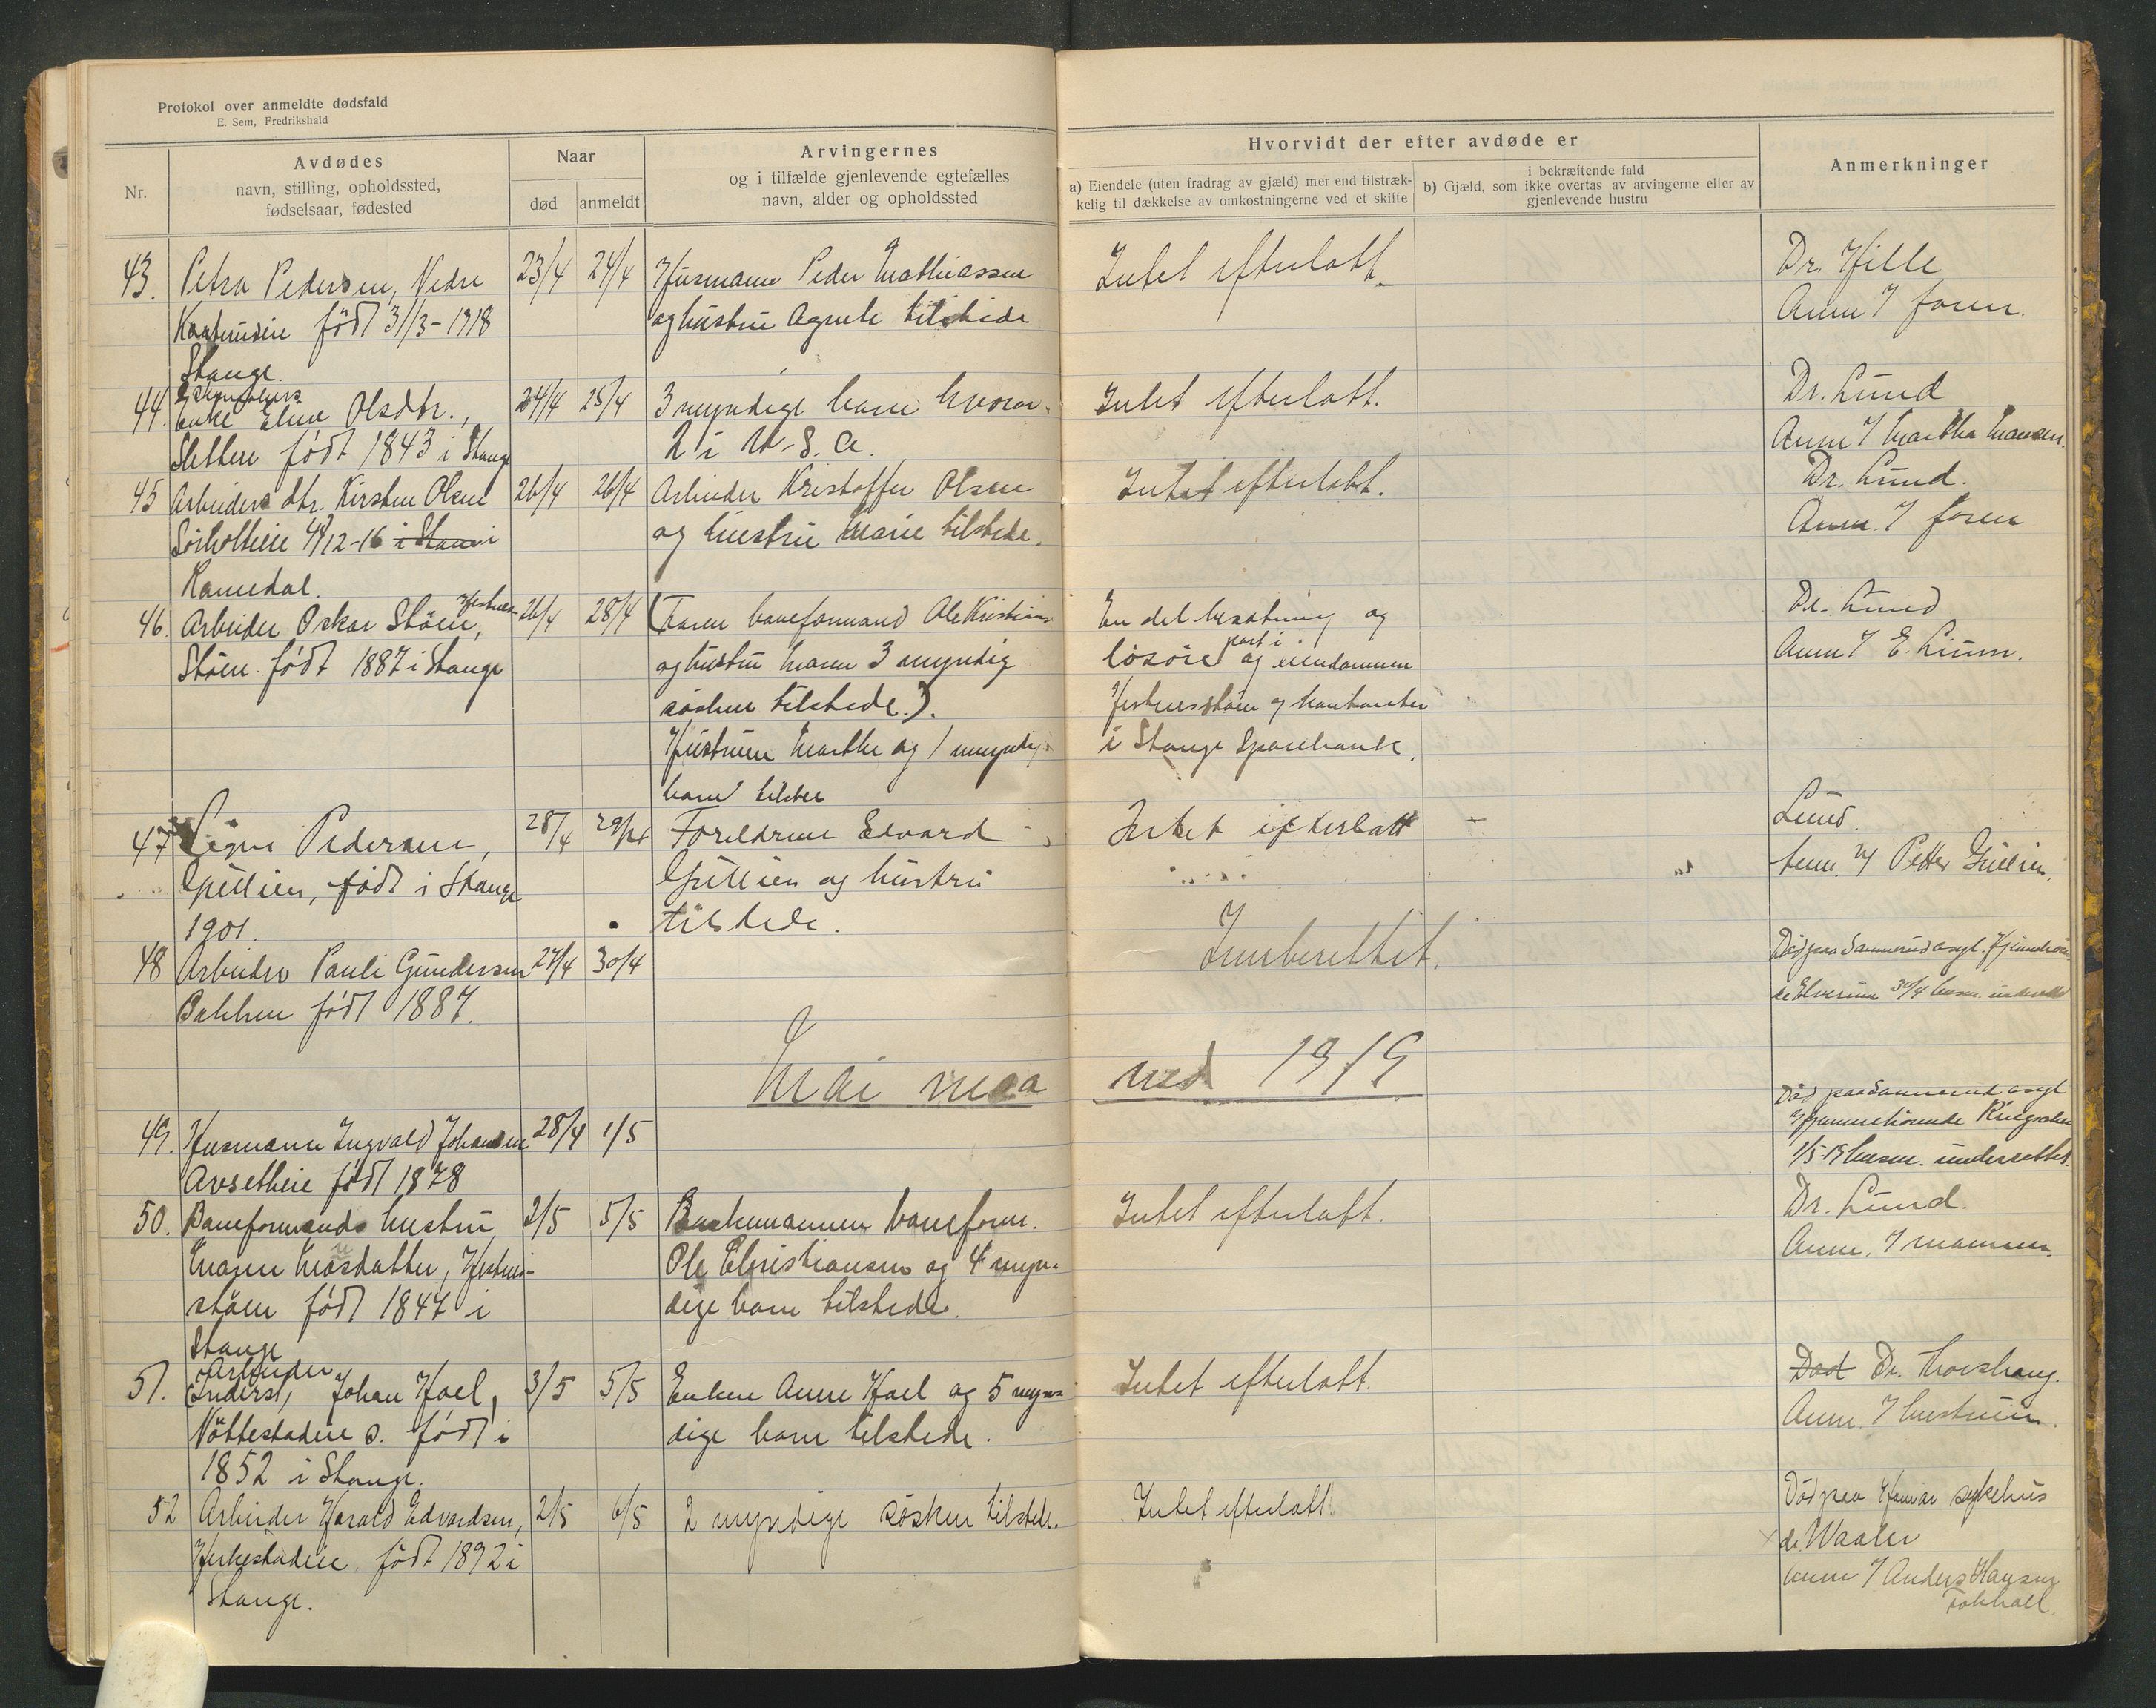 Protokol over anmeldte dødsfald
E. Sem, Fredrikshald
Nr.
Avdødes
navn, stilling, opholdssted,
fødselsaar, fødested
Naar
død
anmeldt
Arvingernes
og i tilfælde gjenlevende egtefælles
navn, alder og opholdssted
Hvorvidt der efter avdøde er
a) Eiendele (uten fradrag av gjæld) mer end tilstræk-
kelig til dækkelse av omkostningerne ved et skifte
i bekræftende fald
b) Gjæld, som ikke overtas av arvingerne eller av
gjenlevende hustru
Anmerkninger
43. Petra Pedersen, Nedre
født 31/3-1918
Stange.
23/4 24/4
Husmann Peder Mathiassen
og hustru Agnete tilstede
Intet efterlatt.
Dr. Hille
Anm / faren.
44.
enke Eline Olsdtr.,
Slettene født 1843 i Stange
24/4 25/4
3 myndige barn hvorav
2 i U.S.A.
Intet efterlatt.
Dr. Lund
Anm / Martha Hansen.
45 Arbeiders dtr. Kirsten Olsen
4/12-16 i Stange i
Romedal.
26/4 26/4
Arbeider Kristoffer Olsen
og hustru Marie tilstede.
Intet efterlatt.
Dr. Lund.
Anm. / faren
46. Arbeider Oskar Støen,
Støen født 1887 i Stange
26/4 28/4
(Faren baneformand Ole Kristians
og hustru Maren 3 myndig
søsken tilstede.).
Hustruen Marthe og 1 myndig
barn tilstede
En del besætning og
løsøre og part i eiendommen
og kontanter
i Stange Sparebank.
Dr. Lund
Anm / E. Lium.
47 Signe Pedersen,
Gullien, født i Stange
1901.
28/4 29/4
Foreldrene Edvard
Gullien og hustru
tilstede.
Intet efterlatt
Lund.
Anm. v/ Petter Gullien.
48 Arbeider Pauli Gundersen
Bakken født 1887.
27/4 30/4
Innberettet.
Død paa Sannerud asyl. Hjemhør.
de Elverum 30/4 lensm. underrettet
Mai maa ned 1919
49. Husmann Ingvald Johansen
født 1878
28/4 1/5
Død paa Sannerud asyl
Hjemmehørende Ringsaker
1/5-19 lensm. underrettet.
50. Baneformands hustru
Maren Moesdatter,
støen født 1847 i
Stange
2/5 5/5
Enkemannen baneform.
Ole Christiansen og 4 myn-
dige barn tilstede.
Intet efterlatt.
Dr. Lund.
Anm. / mannen.
51. Arbeider
Inderst, Johan Hoel,
Nøttestadeie s. født i
1852 i Stange.
3/5 5/5
Enken Anne Hoel og 5 myn-
dige barn tilstede.
Intet efterlatt.
Død Dr. Lovshaug.
Anm. / hustruen.
52 Arbeider Harald Edvardsen,
født 1892 i
Stange.
2/5 6/5
2 myndige søsken tilstede.
Intet efterlatt.
Død paa Hamar sykehus
dr. Waaler
Anm / Anders Hansen